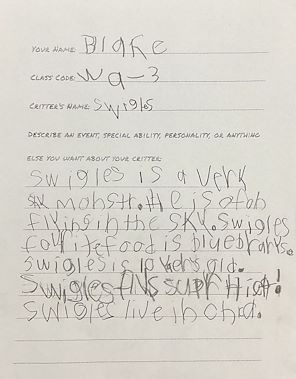 YOUR NAME: Blake
CLASS CODE: Wa-3
CRITTER'S NAME: Swigles
DESCRIBE AN EVENT, SPECIAL ABILITY, PERSONALITY, OR ANYTHING
ELSE YOU WANT ABOUT YOUR CRITTER:
Swigles is a very
monstr. He is ofan
flying in the SKY. Swigles
food is bluebrarys.
Swigles is 10 yers old.
Swigles flys supr High!
Swigles live in chid.